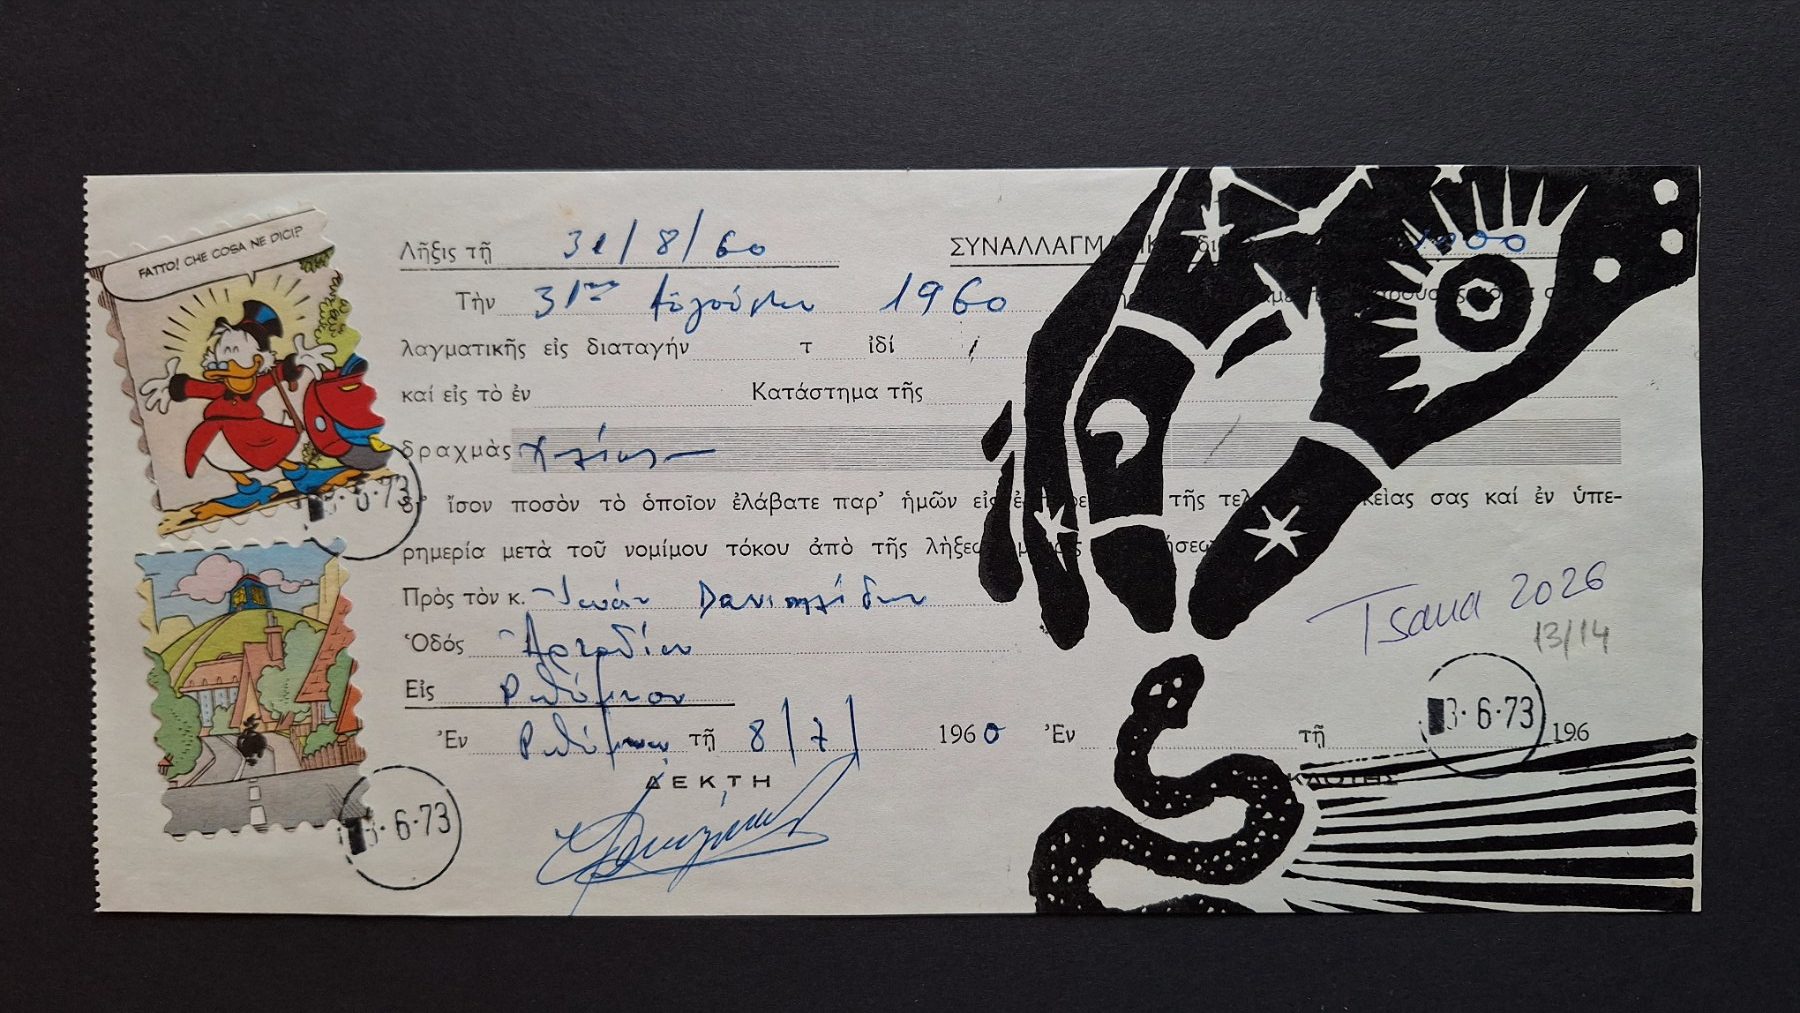 FATTO! CHE COSA NE DICI?
Λῆξις τῇ 31/8/60 ΣΥΝΑΛΛΑΓΜΑΤΙΚ δι 1000
Τὴν 31ην Αὐγούστου 1960
λαγματικῆς εἰς διαταγήν τ ἰδί
καί εἰς τὸ ἐν Κατάστημα τῆς
δραχμὰς Χιλίας
δι' ἴσον ποσὸν τὸ ὁποῖον ἐλάβατε παρ' ἡμῶν εἰς τῆς τελ κείας σας καί ἐν ὑπε-
ρημερία μετὰ τοῦ νομίμου τόκου ἀπὸ τῆς λήξεω
Πρὸς τὸν κ. Δανιηλίδην
Ὁδός Ἀρκαδίου
Εἰς Ρέθυμνον
Ἐν Ρεθύμνῳ τῇ 8/7/ 1960 Ἐν τῇ 196
ΔΕΚΤΗ ΕΚΔΟΤΗΣ
Tsana 2026
13/14
3·6·73
3·6·73
3·6·73